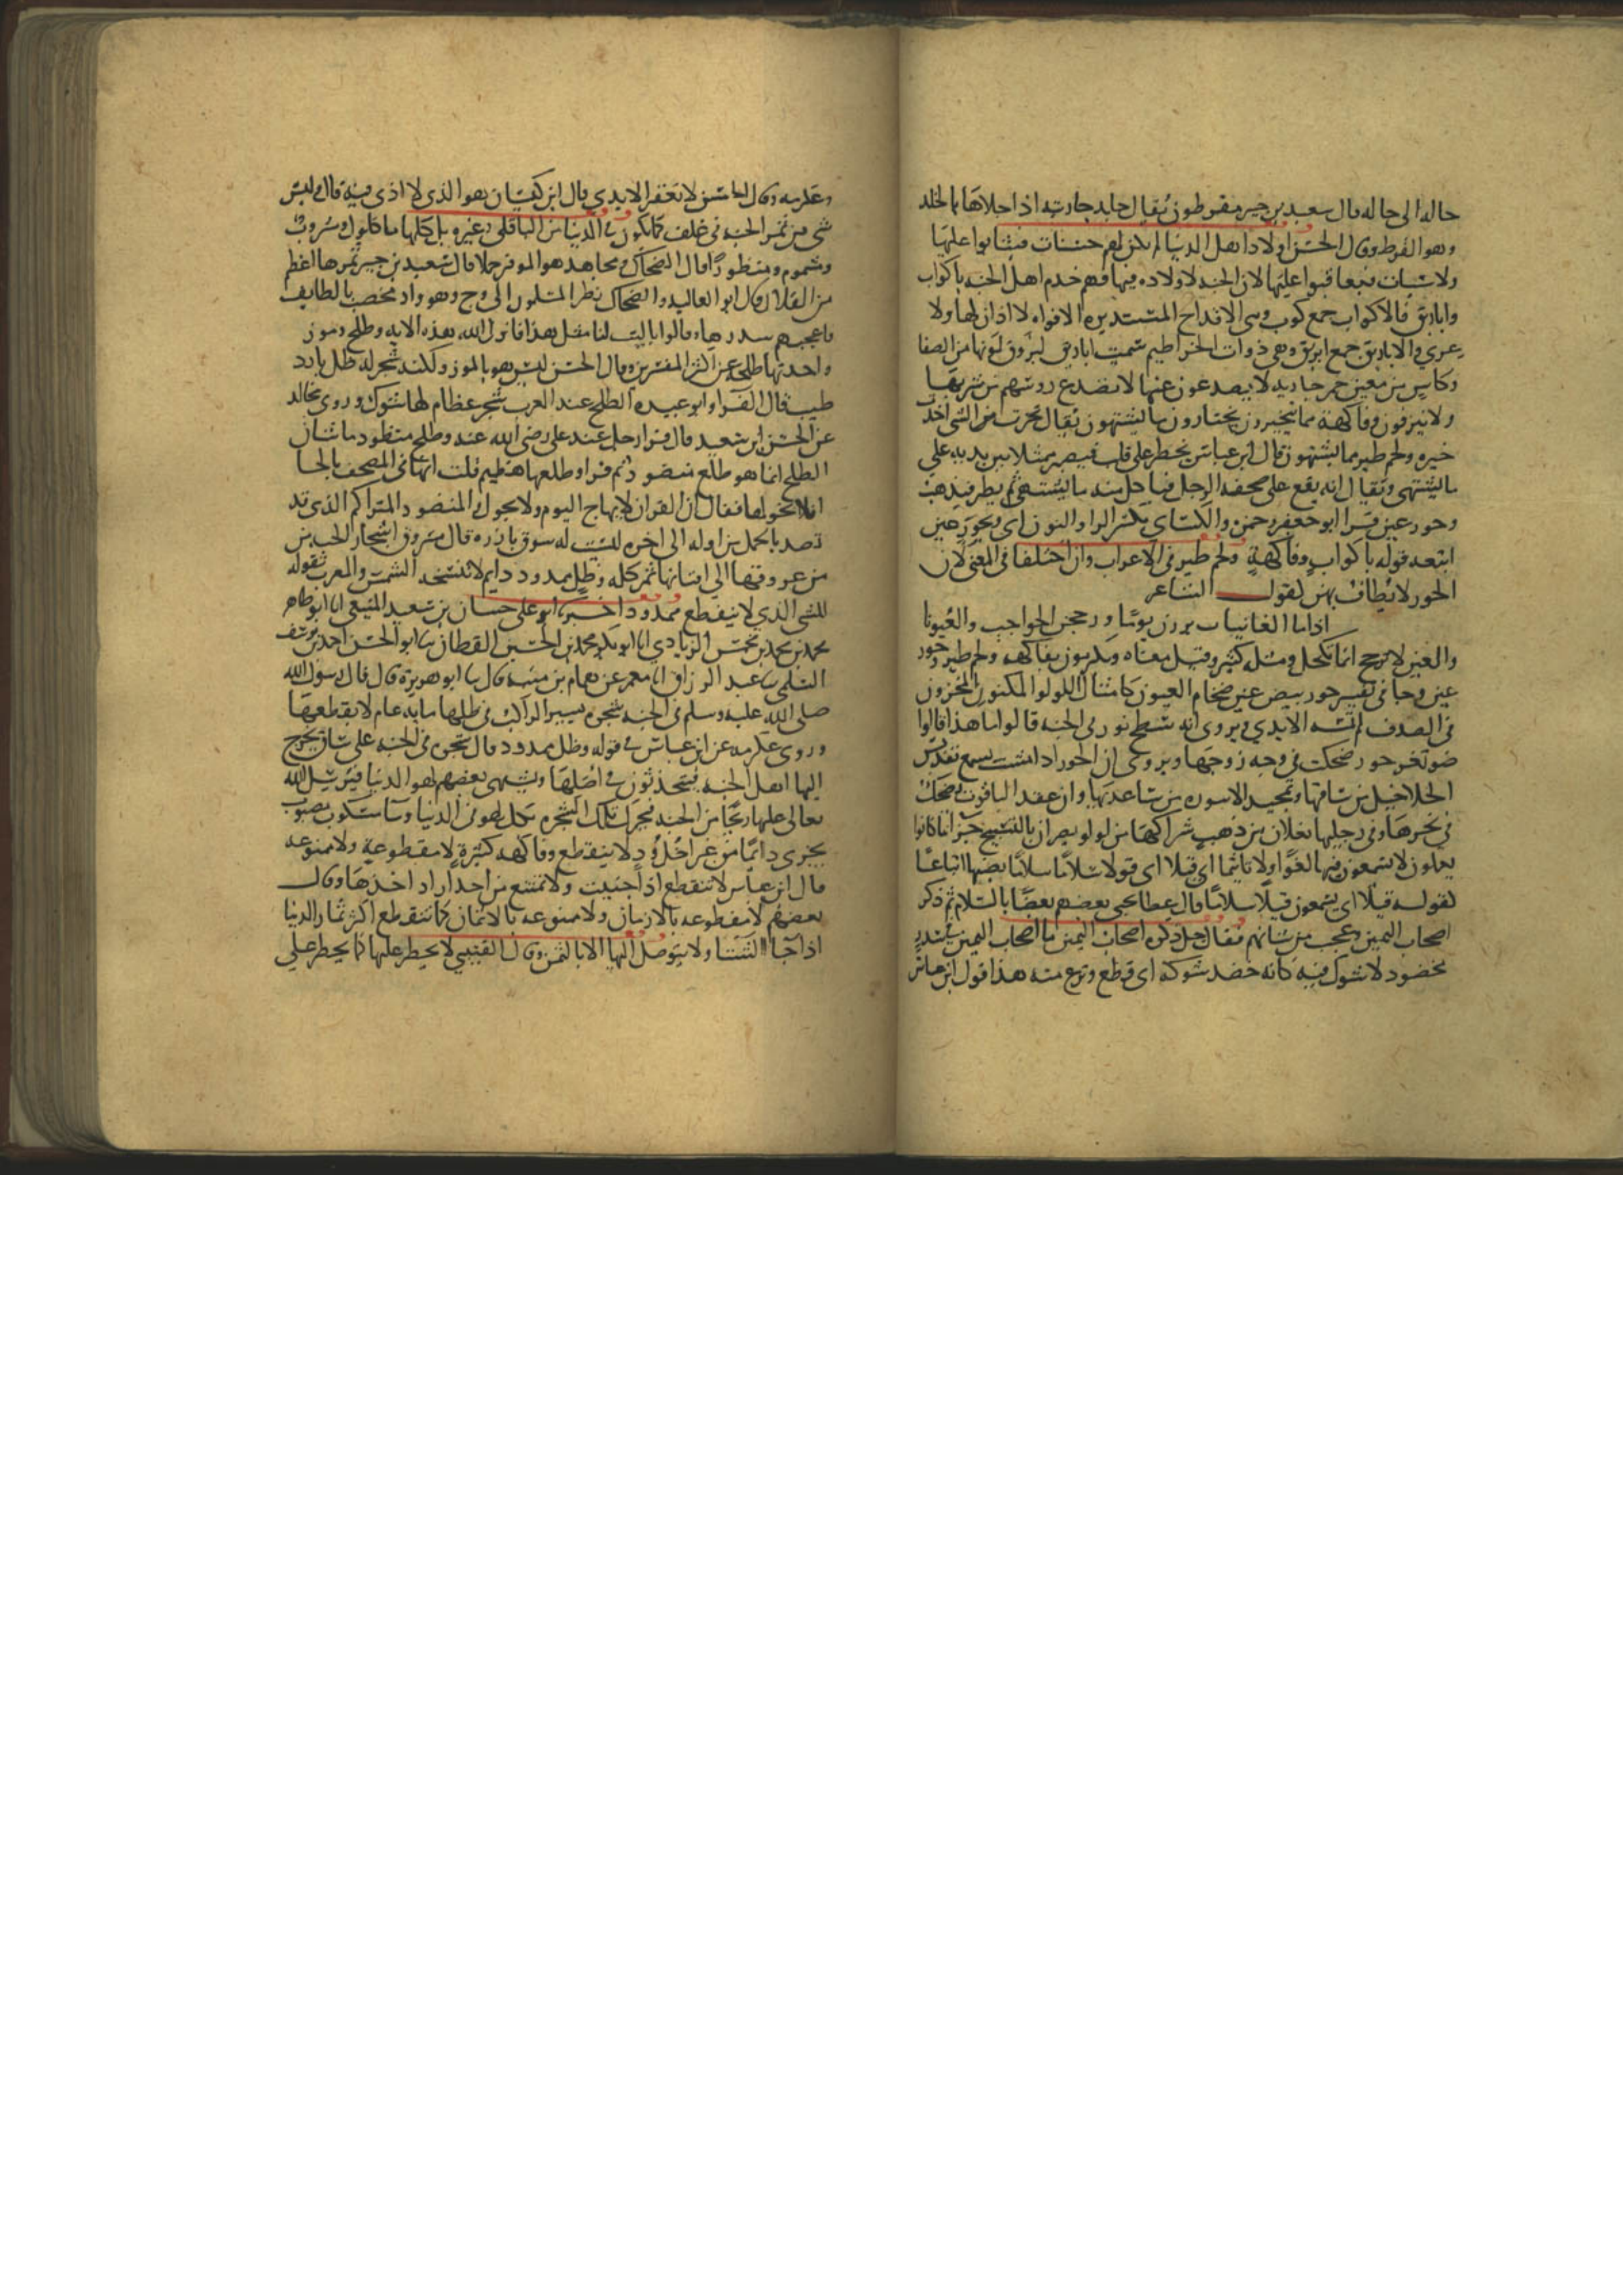 حاله الى حاله قال سعيد بن جبير مقرطون يقال خلد جاريته اذا حلاها بالخلد
وهو القرط وقال الحسن اولاد اهل الدنيا لم يكن لهم حسنات فيثابوا عليها
ولا سيات فيعاقبوا عليها لان الجنه لا ولاده فيها فهم خدم اهل الجنه باكواب
واباريق فالاكواب جمع كوب وهى الاقداح المستديره الافواه لا اذان لها ولا
عرى والاباريق جمع ابريق وهى ذوات الخراطيم سميت اباريق لبروق لونها من الصفا
وكاس من معين خمر جاريه لا يصدعون عنها لا تصدع روسهم من شربها
ولا ينزفون وفاكهة مما يتخيرون يختارون ما يشتهون يقال تخيرت من الشى اخذت
خيره ولحم طير مما يشتهون قال ابن عباس يخطر على قلبه فيصير ممثلا بين يديه على
ما اشتهى ويقال انه يقع على صحفه الرجل فياكل منه ما يشتهى ثم يطير فيذهب
وحور عين قرا ابو جعفر وحمزه والكساى بكسر الرا والنون اى وبحور عين
اتبعه قوله باكواب وفاكهة ولحم طير فى الاعراب وان اختلفا فى المعنى لان
الحور لا يطاف بهن كقول الشاعر
اذا ما الغانيات برزن يوما وزججن الحواجب والعيونا
والعين لا تزجج انما تكحل ومثله كثير وقيل معناه ويكرمون بفاكهه ولحم طير وحور
عين وجا فى تفسير حور بيض عين ضخام العيون كامثال اللولوا المكنون المخزون
فى الصدف لم تمسه الايدي ويروى انه سطع نور فى الجنه قالوا ما هذا قالوا
ضو ثغر حور ضحكت فى وجه زوجها ويروى ان الحور اذا مشت يسمع تقديس
الخلاخيل من ساقها وتمجيد الاسوره من ساعديها وان عقد الياقوت يضحك
فى نحرها وفى رجليها نعلان من ذهب شراكهما من لولو يصران بالتسبيح جزا بما كانوا
يعملون لا يسمعون فيها لغوا ولا تاثيما اى قيلا اى قولا سلاما سلاما نصبها اتباعا
لقوله قيلا اى يسمعون قيلا سلاما قال عطا يحيى بعضهم بعضا بالسلام ثم ذكر
اصحاب اليمين وعجب من شانهم فقال جل ذكره اصحاب اليمين ما اصحاب اليمين فى سدر
مخضود لا شوك فيه كانه خضد شوكه اى قطع ونزع منه هذا قول ابن عباس
وعكرمه وقال الحسن لا تعقر الايدى قال ابن كيسان هو الذى لا اذى فيه قال وليس
شى من ثمر الجنه فى غلف كما يكون فى الدنيا من الباقلى وغيره بل كلها ماكول ومشروب
ومشموم ومنظور قال الضحاك ومجاهد هو الموقر حملا قال سعيد بن جبير ثمرها اعظم
من القلال قال ابو العاليه والضحاك نظر المسلمون الى وج وهو واد مخصب بالطايف
فاعجبهم سدرها وقالوا ياليت لنا مثل هذا فانزل الله هذه الايه وطلح وموز
واحدتها طلحه عن اكثر المفسرين وقال الحسن ليس هو بالموز ولكنه شجر له ظل بارد
طيب قال الفرا وابو عبيده الطلح عند العرب شجر عظام لها شوك وروى مجالد
عن الحسن بن سعيد قال قرا رجل عند على رضى الله عنه وطلح منضود ما شان
الطلح انما هو طلع منضود ثم قرا وطلعها هضيم قلت انها فى المصحف بالحا
افلا نحولها فقال ان القران لا يهاج اليوم ولا يحول المنضود المتراكم الذى قد
نضد بالحمل من اوله الى اخره ليست له سوق بارزه قال مسروق اشجار الجنه من
من عروقها الى افنانها ثمر كله وظل ممدود دايم لا تنسخه الشمس والعرب تقول
للشى الذي لا ينقطع ممدود اخبرنا ابو على حسان بن سعيد المنيعى انا ابو طاهر
محمد بن محمد بن محمش الزيادي انا ابو بكر محمد بن الحسين القطان نا ابو الحسن احمد بن يوسف
السلمى نا عبد الرزاق انا معمر عن همام بن منبه قال نا ابو هريرة قال قال رسول الله
صلى الله عليه وسلم فى الجنه شجره يسير الراكب فى ظلها مايه عام لا يقطعها
وروى عكرمه عن ابن عباس فى قوله وظل ممدود قال شجره فى الجنه على ساق يخرج
اليها اهل الجنه فيتحدثون فى اصلها ويشتهى بعضهم لهو الدنيا فيرسل الله
تعالى عليها ريحا من الجنه فتحرك تلك الشجره بكل لهو فى الدنيا وما مسكوب مصبوب
يجرى دايما من غير اخدود لا ينقطع وفاكهه كثيرة لا مقطوعة ولا ممنوعه
قال ابن عباس لا تنقطع اذا جنيت ولا تمتنع من احد اراد اخذها وقال
بعضهم لا مقطوعه بالازمان ولا ممنوعه بالاثمان كما تنقطع اكثر ثمار الدنيا
اذا جا الشتا ولا يتوصل اليها الا بالثمن وقال القتيبي لا يحظر عليها كما يحظر على